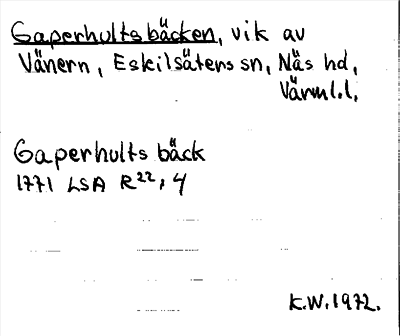 Gaperhultsbäcken, vik av
Vänern, Eskilsäters sn, Näs hd,
Värml.l.
Gaperhults bäck
1771 LSA R22:4
K.W.1972.